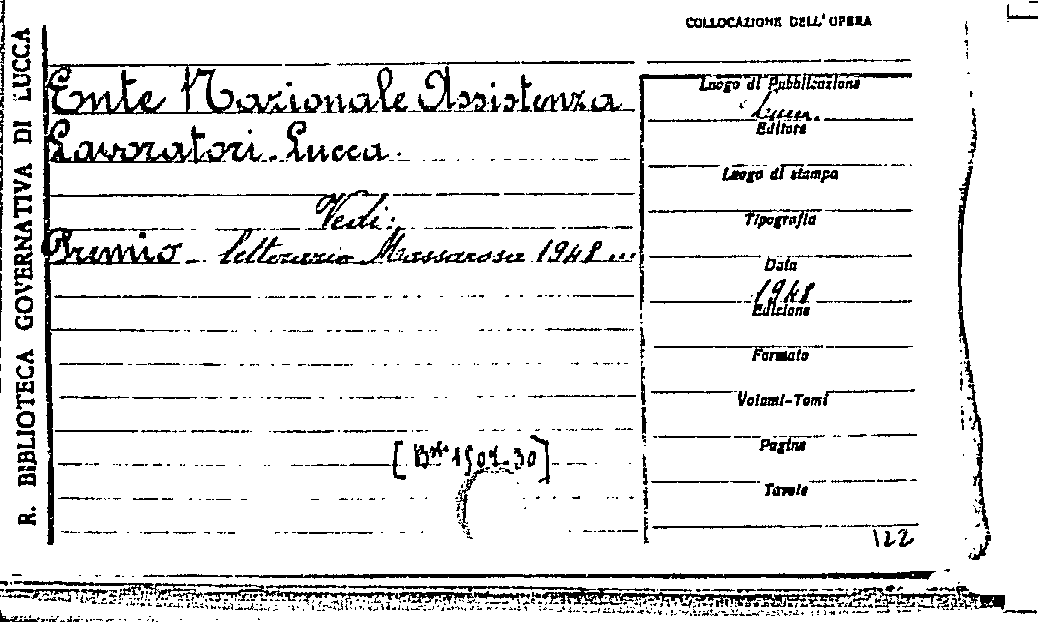 COLLOCAZIONE DELL'OPERA
R. BIBLIOTECA GOVERNATIVA DI LUCCA
Ente Nazionale Assistenza
Lavoratori. Lucca.
Vedi:
Premio - letterario Massarosa 1948 ...
[B.ta 1501-30]
Luogo di Pubblicazione
Lucca.
Editore
Luogo di stampa
Tipografia
Data
1948
Edizione
Formato
Volumi-Tomi
Pagine
Tavole
122